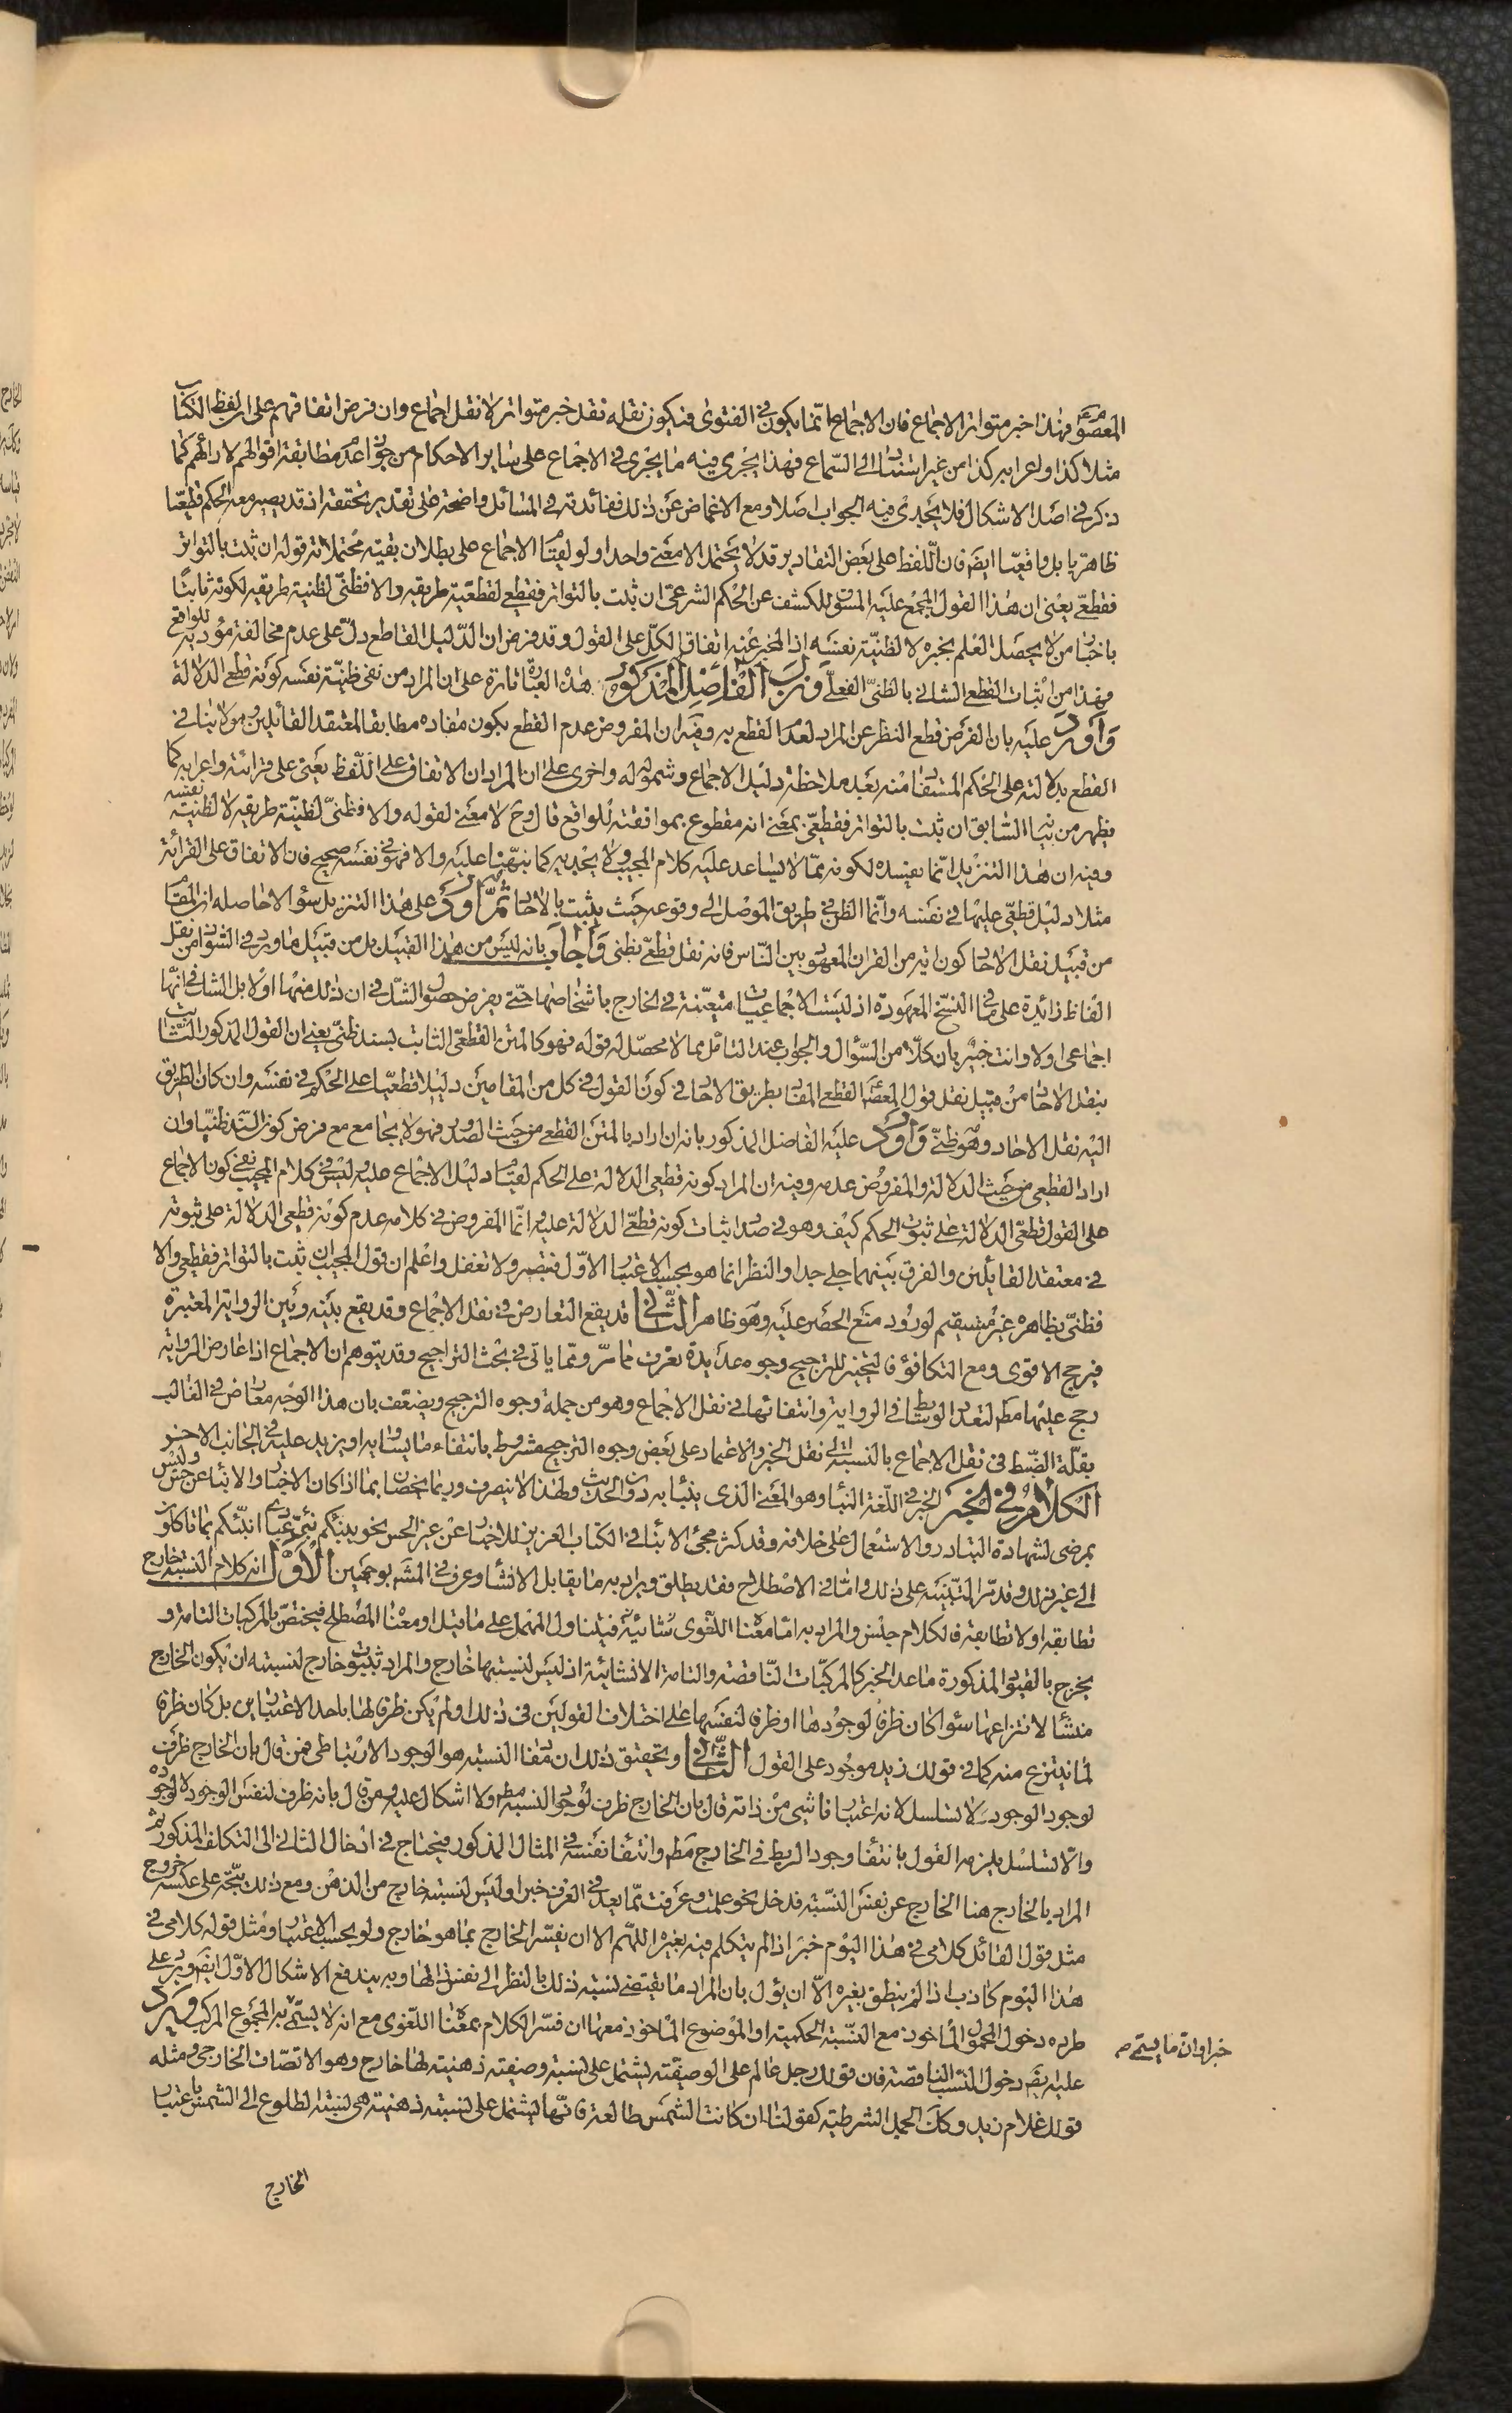 المعصوم فهذا خبر متواتر لا اجماع فان الاجماع انما يكون في الفتوى فيكون نقله نقل خبر متواتر لا نقل اجماع وان فرض اتفاقهم على ان لفظ الكتاب
مثلا كذا او اعرابه كذا من غير استناد الى السماع فهذا يجرى فيه ما يجرى في الاجماع على ساير الاحكام من جواز عدم مطابقة اقوالهم لارائهم كما
ذكر في اصل الاشكال فلا يجدى فيه الجواب اصلا ومع الاغماض عن ذلك ففائدته في المسائل واضحة على تقدير تحققه اذ قد يصير معه الحكم قطعيا
ظاهريا بل واقعيا ايضا فان اللفظ على بعض التقادير قد لا يحتمل الا معنى واحدا ولو لقيام الاجماع على بطلان بقية محتملاته قوله ان ثبت بالتواتر
فقطعى يعنى ان هذا القول المجمع عليه المسوق للكشف عن الحكم الشرعى ان ثبت بالتواتر فقطعى لقطعية طريقه والا فظنى لظنية طريقه لكونه ثابتا
باخبار من لا يحصل العلم بخبره لا لظنية نفسه اذ المخبر عنه اتفاق الكل على القول وقد فرض ان الدليل القاطع دل على عدم مخالفة مؤديه للواقع
فهذا من اثبات القطع الشانى بالظنى الفعلى ونزل الفاضل المذكور هذه العبارة تارة على ان المراد من نفى ظنية نفسه كونه قطعى الدلالة
واورد عليه بان الفرض قطع النظر عن المراد لعدم القطع به وفيه ان المفروض عدم القطع بكون مفاده مطابقا لمعتقد القائلين وهو لا ينافى
القطع بدلالته على الحكم المستفاد منه بعد ملاحظة دليل الاجماع وشموله له واخرى على ان المراد ان الاتفاق على اللفظ يعنى على قرائته واعرابه كما
يظهر من بيانه السابق ان ثبت بالتواتر فقطعى بمعنى انه مقطوع بموافقته للواقع قال وح لا معنى لقوله والا فظنى لظنية طريقه لا لظنية نفسه
وفيه ان هذا التنزيل انما يفسده لكونه مما لا يساعد عليه كلام المجيب ولا يجديه كما نبهنا عليه والا فهو في نفسه صحيح فان الاتفاق على القرائة
مثلا دليل قطعى عليها في نفسه وانما الظن في طريق الموصل الى وقوعه حيث يثبت بالاحاد ثم اورد على هذا التنزيل سؤالا حاصله ان المقام
من قبيل نقل الاحاد كون اية من القران المعهود بين الناس فانه نقل قطعى بظنى واجاب بانه ليس من هذا القبيل بل من قبيل ما ورد في الشواذ من نقل
الفاظ زائدة على ما في النسخ المعهودة اذ ليست الاجماعيات متعينة في الخارج باشخاصها حتى يفرض حصول الشك في ان ذلك منها اولا بل الشك في انها
اجماعى اولا وانت خبير بان كلا من السؤال والجواب عند التامل مما لا محصل له قوله فهو كالمتن القطعى الثابت بسند ظنى يعنى ان القول المذكور الثابت
بنقل الاحاد من قبيل نقل قول المعصوم القطعى المفاد بطريق الاحاد في كون القول في كل من المقامين دليلا قطعيا على الحكم في نفسه وان كان الطريق
اليه نقل الاحاد وهو ظنى واورد عليه الفاضل المذكور بانه ان اراد بالمتن القطعى من حيث الصدور فهو لا يجامع مع فرض كون السند ظنيا وان
اراد القطعى من حيث الدلالة والمفروض عدمه وفيه ان المراد كونه قطعى الدلالة على الحكم لقيام دليل الاجماع عليه وليس في كلام المجيب نفى كون الاجماع
على القول قطعى الدلالة على ثبوت الحكم كيف وهو في صدد اثبات كونه قطعى الدلالة عليه وانما المفروض في كلامه عدم كونه قطعى الدلالة على ثبوته
في معتقد القائلين والفرق بينهما جلى جدا والنظر انما هو بحسب الاعتبار الاول فتبصر ولا تغفل واعلم ان قول المجيب ان ثبت بالتواتر فقطعى والا
فظنى بظاهره غير مستقيم لورود منع الحصر عليه وهو ظاهر الثانى قد يقع التعارض في نقل الاجماع وقد يقع بينه وبين الرواية المعتبرة
فيرجح الاقوى ومع التكافؤ فالتخيير وللترجيح وجوه عديدة تعرف مما مر ومما ياتى في بحث التراجيح وقد يتوهم ان الاجماع اذا عارض الرواية
رجح عليها مطلقا لتعدد الوسايط في الرواية وانتفائها في نقل الاجماع وهو من جملة وجوه الترجيح ويضعف بان هذا الوجه معارض في الغالب
بقلة الضبط في نقل الاجماع بالنسبة الى نقل الخبر والاعتماد على بعض وجوه الترجيح مشروط بانتفاء ما يساويه او يزيد عليه في الجانب الاخر
الكلام في الخبر الخبر في اللغة النبأ وهو المعنى الذى ينبأ به دون الحديث ولهذا لا ينصرف وربما يخصان بما اذا كان الاخبار والانباء عن حس وليس
بمرضى لشهادة التبادر والاستعمال على خلافه وقد كثر مجئ الانباء في الكتاب العزيز للاخبار عن غير الحس نحو ينبئكم نبئ عبادى انبئكم بما تاكلون
الى غير ذلك وقد مر التنبيه على ذلك واما في الاصطلاح فقد يطلق ويراد به ما يقابل الانشاء وعرف في المشهور بوجهين الاول انه كلام لنسبته خارج
تطابقه او لا تطابقه فالكلام جنس والمراد به اما معناه اللغوى فيتناول المهمل على ما قيل او معناه المصطلح فيختص بالمركبات التامة و
يخرج بالقيود المذكورة ما عدا الخبر كالمركبات الناقصة والتامة الانشائية اذ ليس لنسبتها خارج والمراد بثبوت خارج لنسبته ان يكون الخارج
منشأ لانتزاعها سواء كان ظرفا لوجودها او ظرفا لنفسها على اختلاف القولين في ذلك او لم يكن ظرفا لها باحد الاعتبارين بل كان ظرفا
لما ينتزع منه كما في قولك زيد موجود على القول الثانى وتحقيق ذلك ان مفاد النسبة هو الوجود الارتباطى فمن قال بان الخارج ظرف
لوجود الوجود ولا تسلسل لانه اعتبار ناشى من ذاته قال بان الخارج ظرف لوجود النسبة مطلقا ولا اشكال عليه ومن قال بانه ظرف لنفس الوجود لا لوجوده
والا تسلسل يلزمه القول بانتفاء وجود الربط في الخارج مطلقا وانتفاء نفسه في المثال المذكور فيحتاج في ادخال الثانى الى التكلف المذكور ثم
المراد بالخارج هنا الخارج عن نفس النسبة فدخل نحو علمت وعرفت مما يعد في العرف خبرا وليس لنسبته خارج من الذهن ومع ذلك يتجه على عكسه خروج
مثل قول القائل كلامى في هذا اليوم خبر اذا لم يتكلم فيه بغيره اللهم الا ان يفسر الخارج بما هو خارج ولو بحسب الاعتبار ومثل قوله كلامى في
هذا اليوم كاذب اذا لم ينطق بغيره الا ان يؤل بان المراد ما يقتضى نسبته ذلك بالنظر الى نفس ذاتها وبه يندفع الاشكال الاول ايضا ويرد على
طرده دخول المحمول الماخوذ مع النسبة الحكمية او الموضوع الماخوذ معها ان فسر الكلام بمعناه اللغوى مع انه لا يسمى به المجموع المركب ويرد
خبرا وان ما يسمى به
عليه ايضا دخول النسب الناقصة فان قولك رجل عالم على الوصفية يشتمل على نسبة وصفية ذهنية لها خارج وهو الاتصاف الخارجى ومثله
قولك غلام زيد وكذا الجمل الشرطية كقولنا ان كانت الشمس طالعة فانها يشتمل على نسبة ذهنية هى نسبة الطلوع الى الشمس باعتبار
الخارج